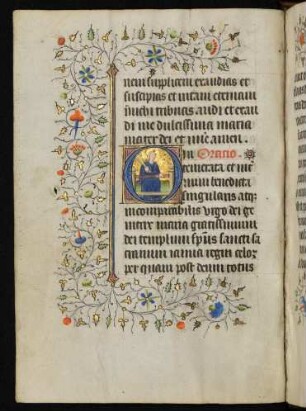 nem supplicem exaudias et
suscipias et vitam eternam
michi tribuas audi et exau
di me dulcissima maria
mater dei et mie amen.
Oratio
temerata et in e
num benedicta
singularis atq;
incomparabilis virgo dei ge
nitrix maria gratissimum
dei templum spus sancti sa
crarium ianua regni celor
per quam post deum totus